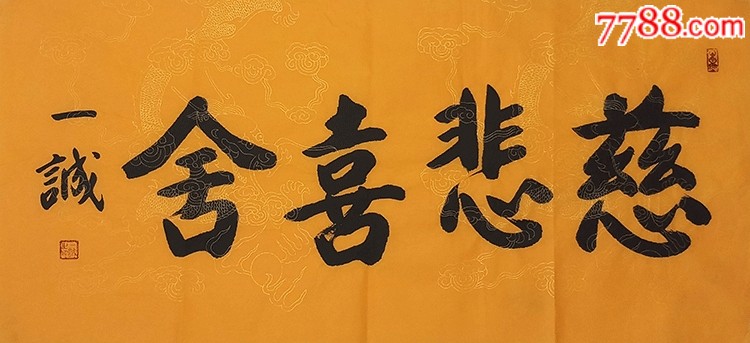 7788.com
慈悲喜舍
一誠